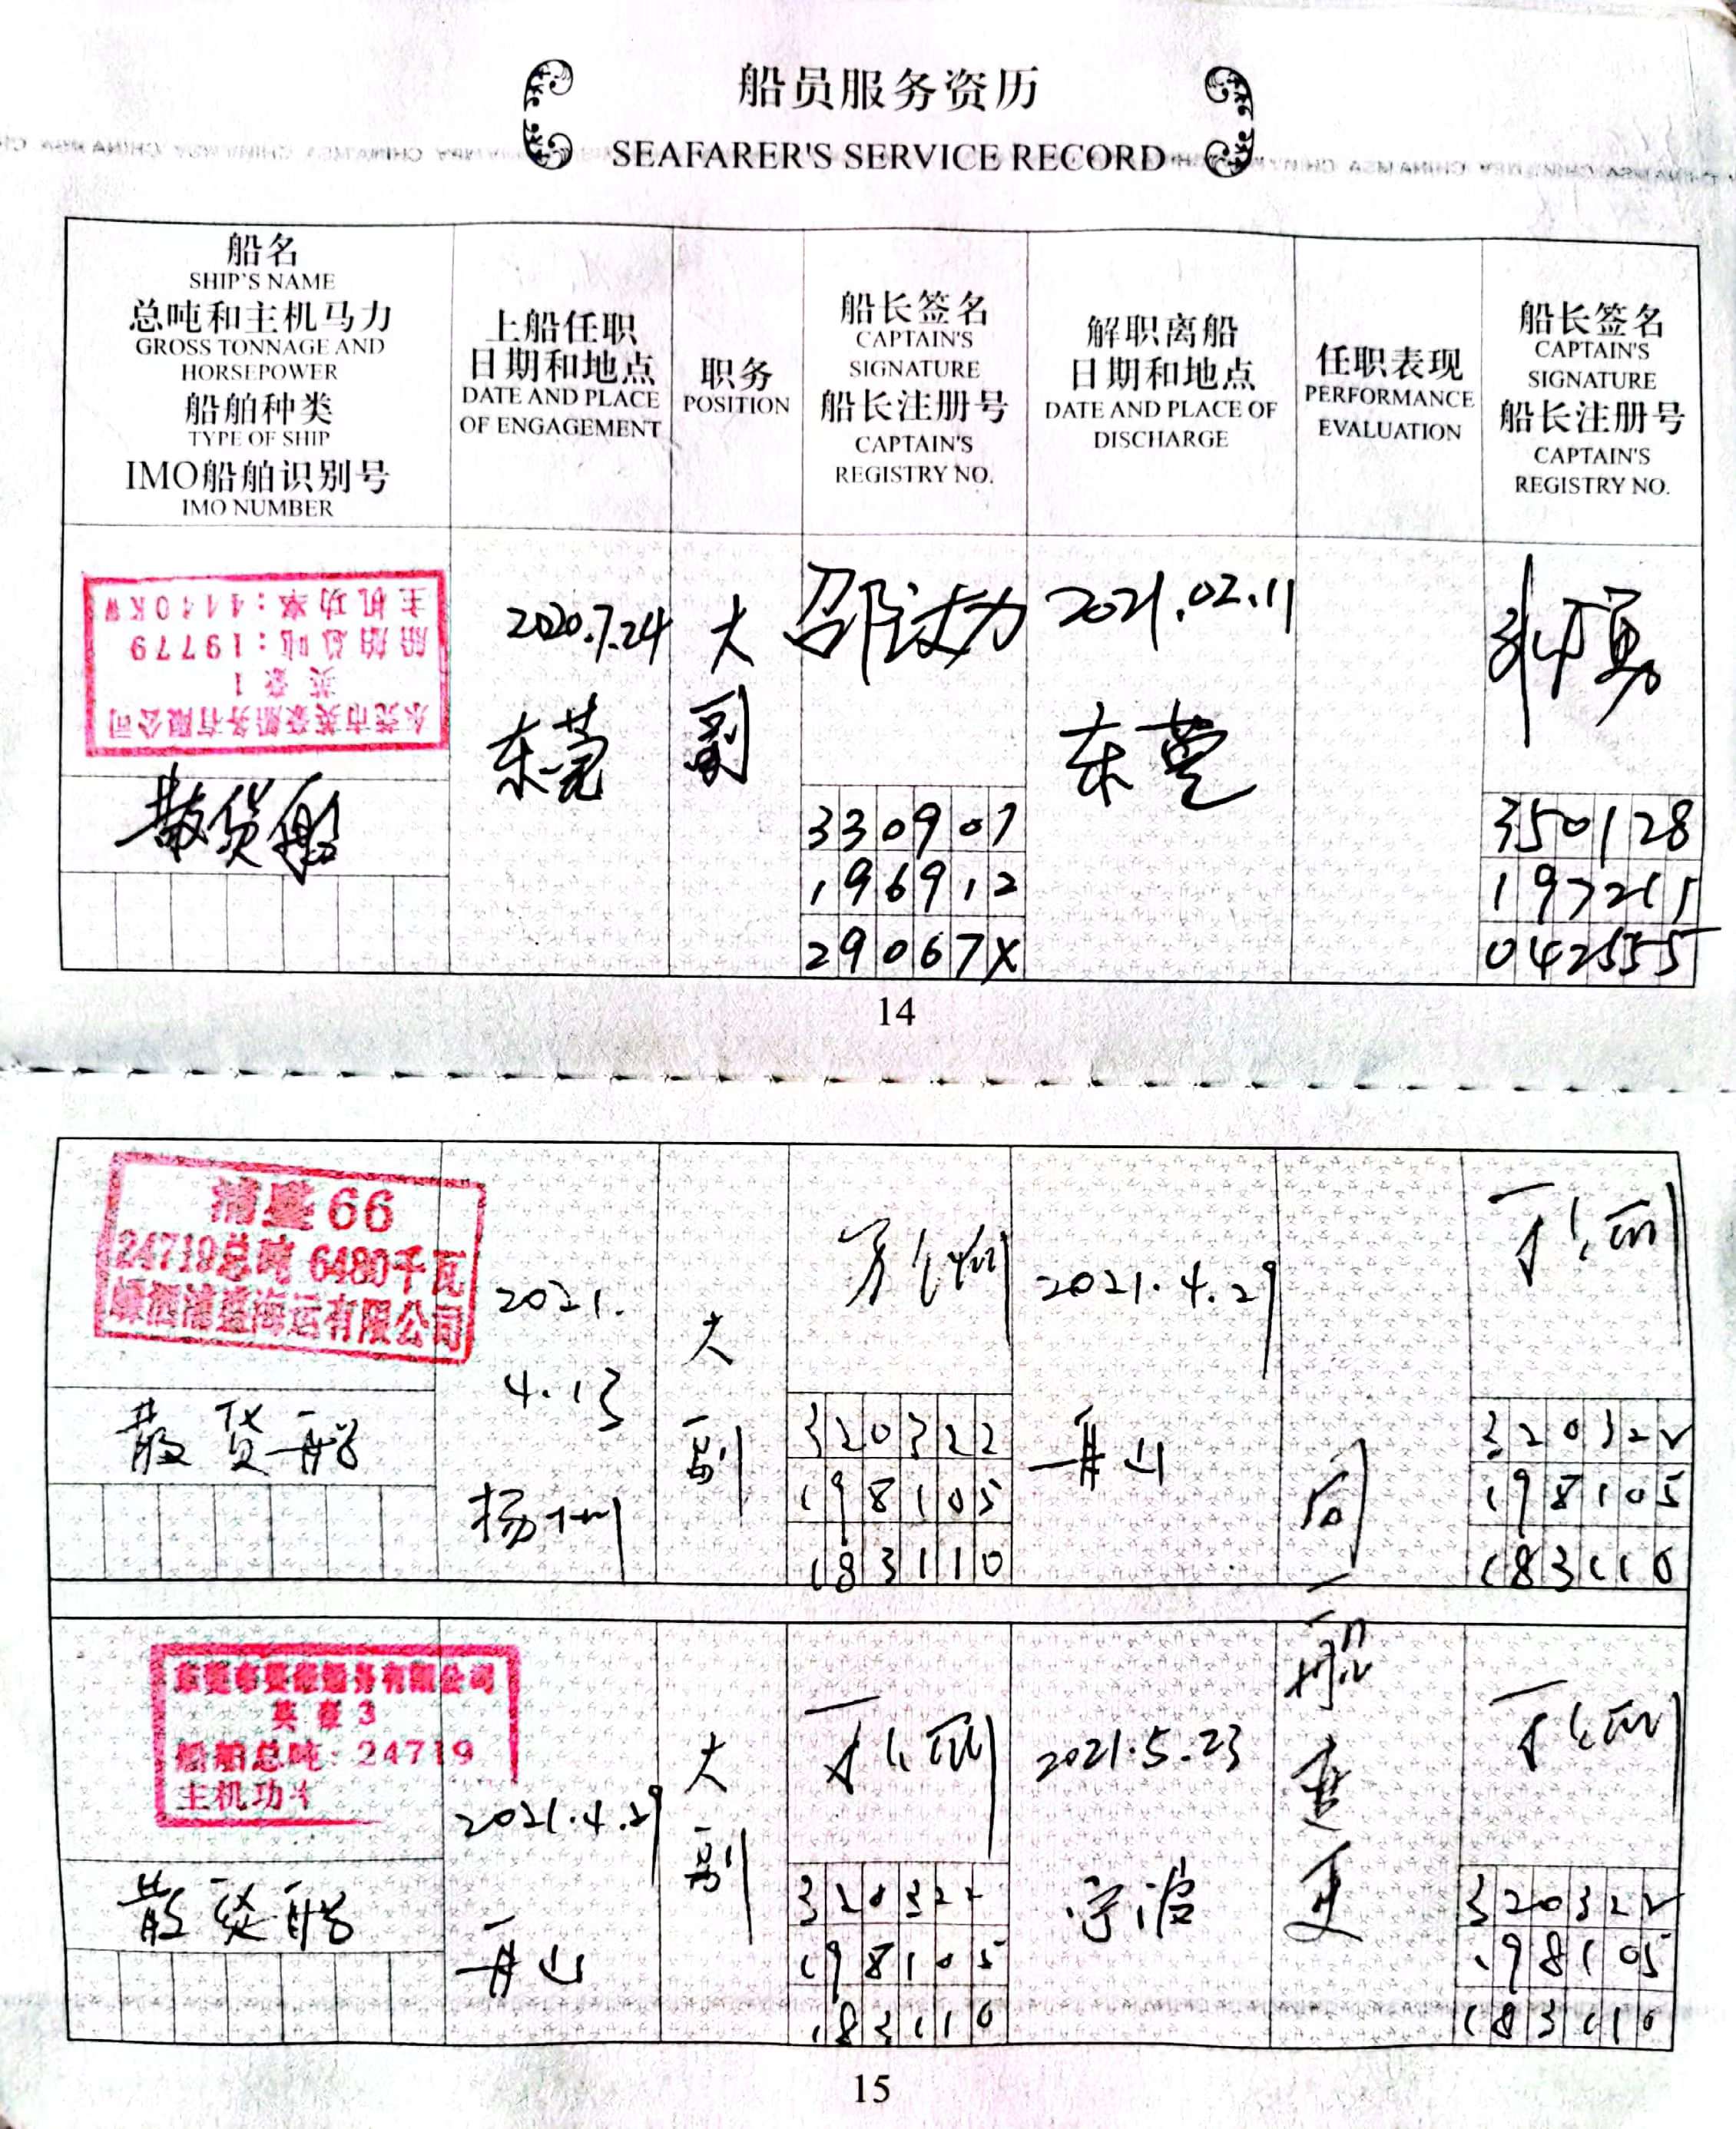 船员服务资历
SEAFARER'S SERVICE RECORD
船名
SHIP'S NAME
总吨和主机马力
GROSS TONNAGE AND
HORSEPOWER
船舶种类
TYPE OF SHIP
IMO船舶识别号
IMO NUMBER
上船任职
日期和地点
DATE AND PLACE
OF ENGAGEMENT
职务
POSITION
船长签名
CAPTAIN'S
SIGNATURE
船长注册号
CAPTAIN'S
REGISTRY NO.
解职离船
日期和地点
DATE AND PLACE OF
DISCHARGE
任职表现
PERFORMANCE
EVALUATION
船长签名
CAPTAIN'S
SIGNATURE
船长注册号
CAPTAIN'S
REGISTRY NO.
东莞市英豪船务有限公司
英豪1
船舶总吨:19779
主机功率:4440KW
散货船
2020.7.24
东莞
大
副
330907
196912
29067X
2021.02.11
东莞
350128
197215
042555
14
浦盛66
24719总吨 6480千瓦
嵊泗浦盛海运有限公司
散货船
2021.
4.13
扬州
大
副
320322
198105
183110
2021.4.29
舟山
同
一
船
变
更
320322
198105
183110
东莞市英豪船务有限公司
英豪3
船舶总吨:24719
主机功
散货船
2021.4.29
舟山
大
副
320322
198105
183110
2021.5.23
宁波
320322
198105
183110
15